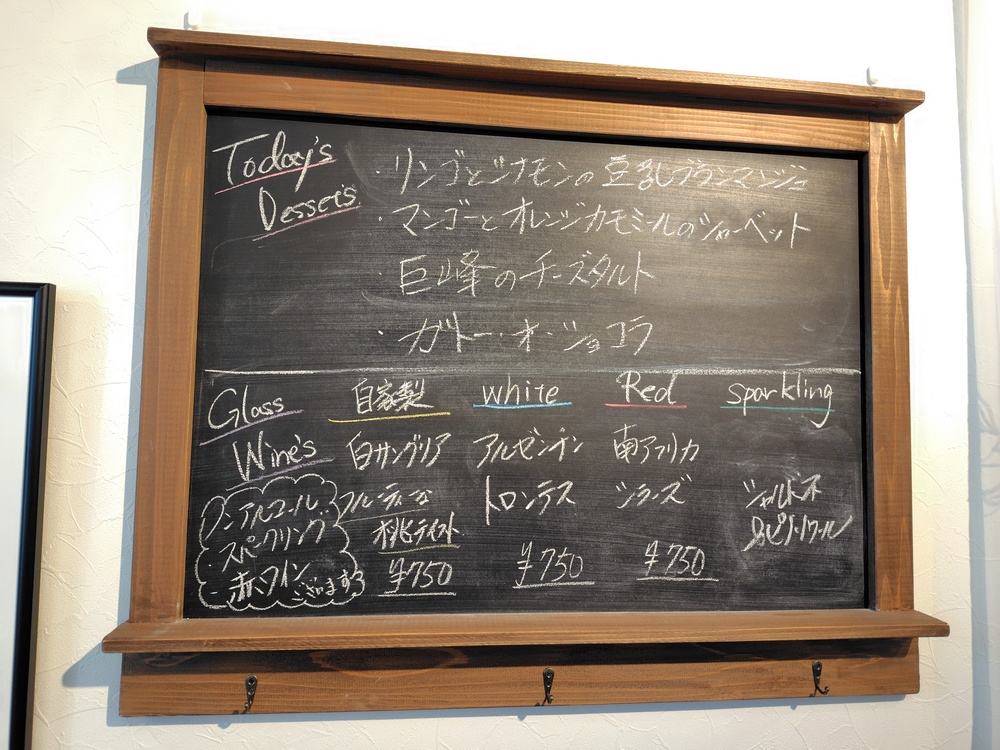 Today's
Desserts
・リンゴとシナモンの豆乳ブランマンジェ
・マンゴーとオレンジカモミールのシャーベット
・巨峰のチーズタルト
・ガトー・オ・ショコラ
Glass
Wine's
自家製
白サングリア
フルーティーな
桃テイスト
¥750
white
アルゼンチン
トロンテス
¥750
Red
南アフリカ
シラーズ
¥750
sparkling
シャルドネ
ピノ・ノワール
ノンアルコール
・スパークリング
・赤ワイン ございます